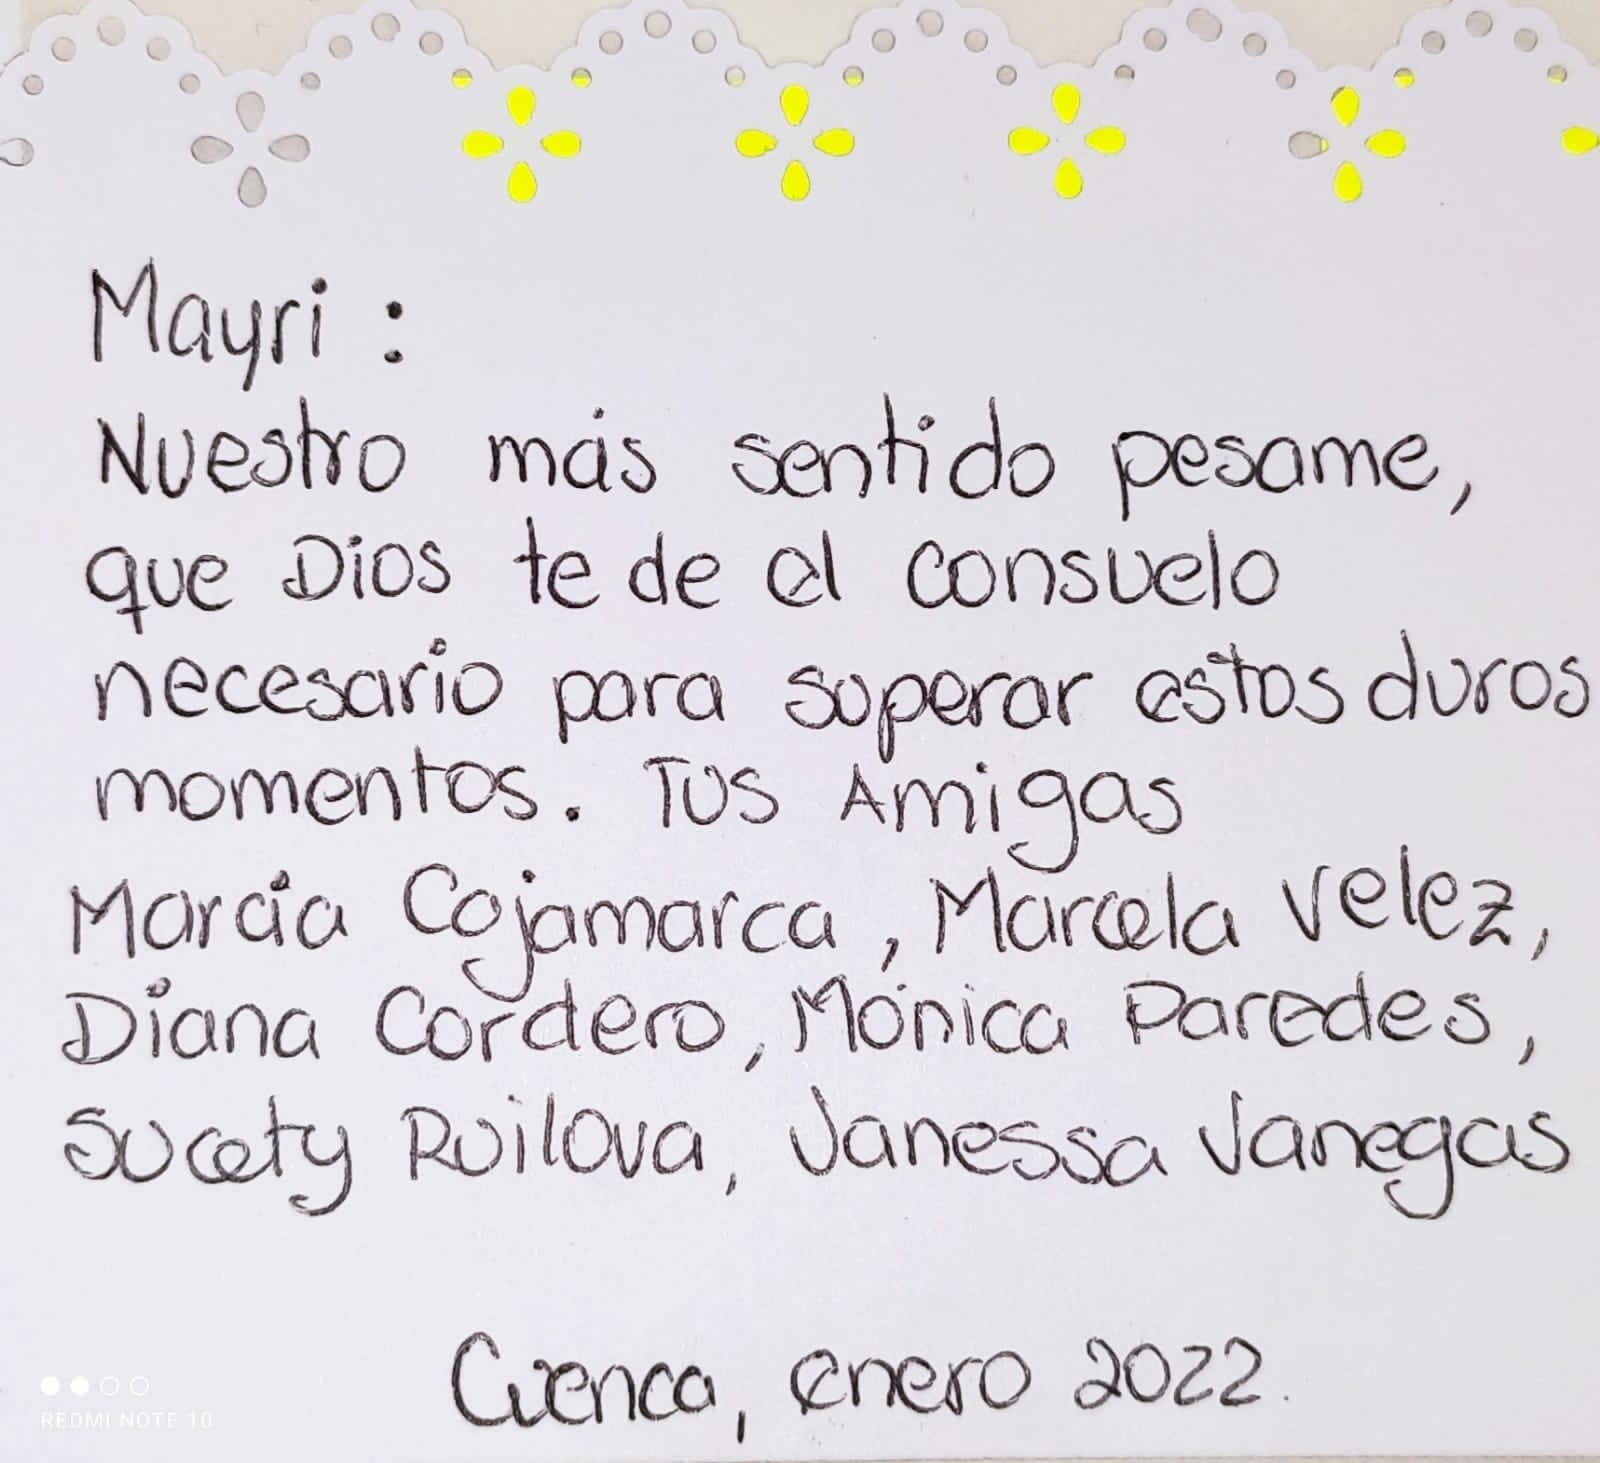 Mayri :
Nuestro más sentido pesame,
que Dios te de el consuelo
necesario para superar estos duros
momentos. Tus Amigas
Marcia Cojamarca, Marcela Velez,
Diana Cordero, Mónica Paredes,
Sucety Ruilova, Vanessa Vanegas
Cuenca, enero 2022.
REDMI NOTE 10